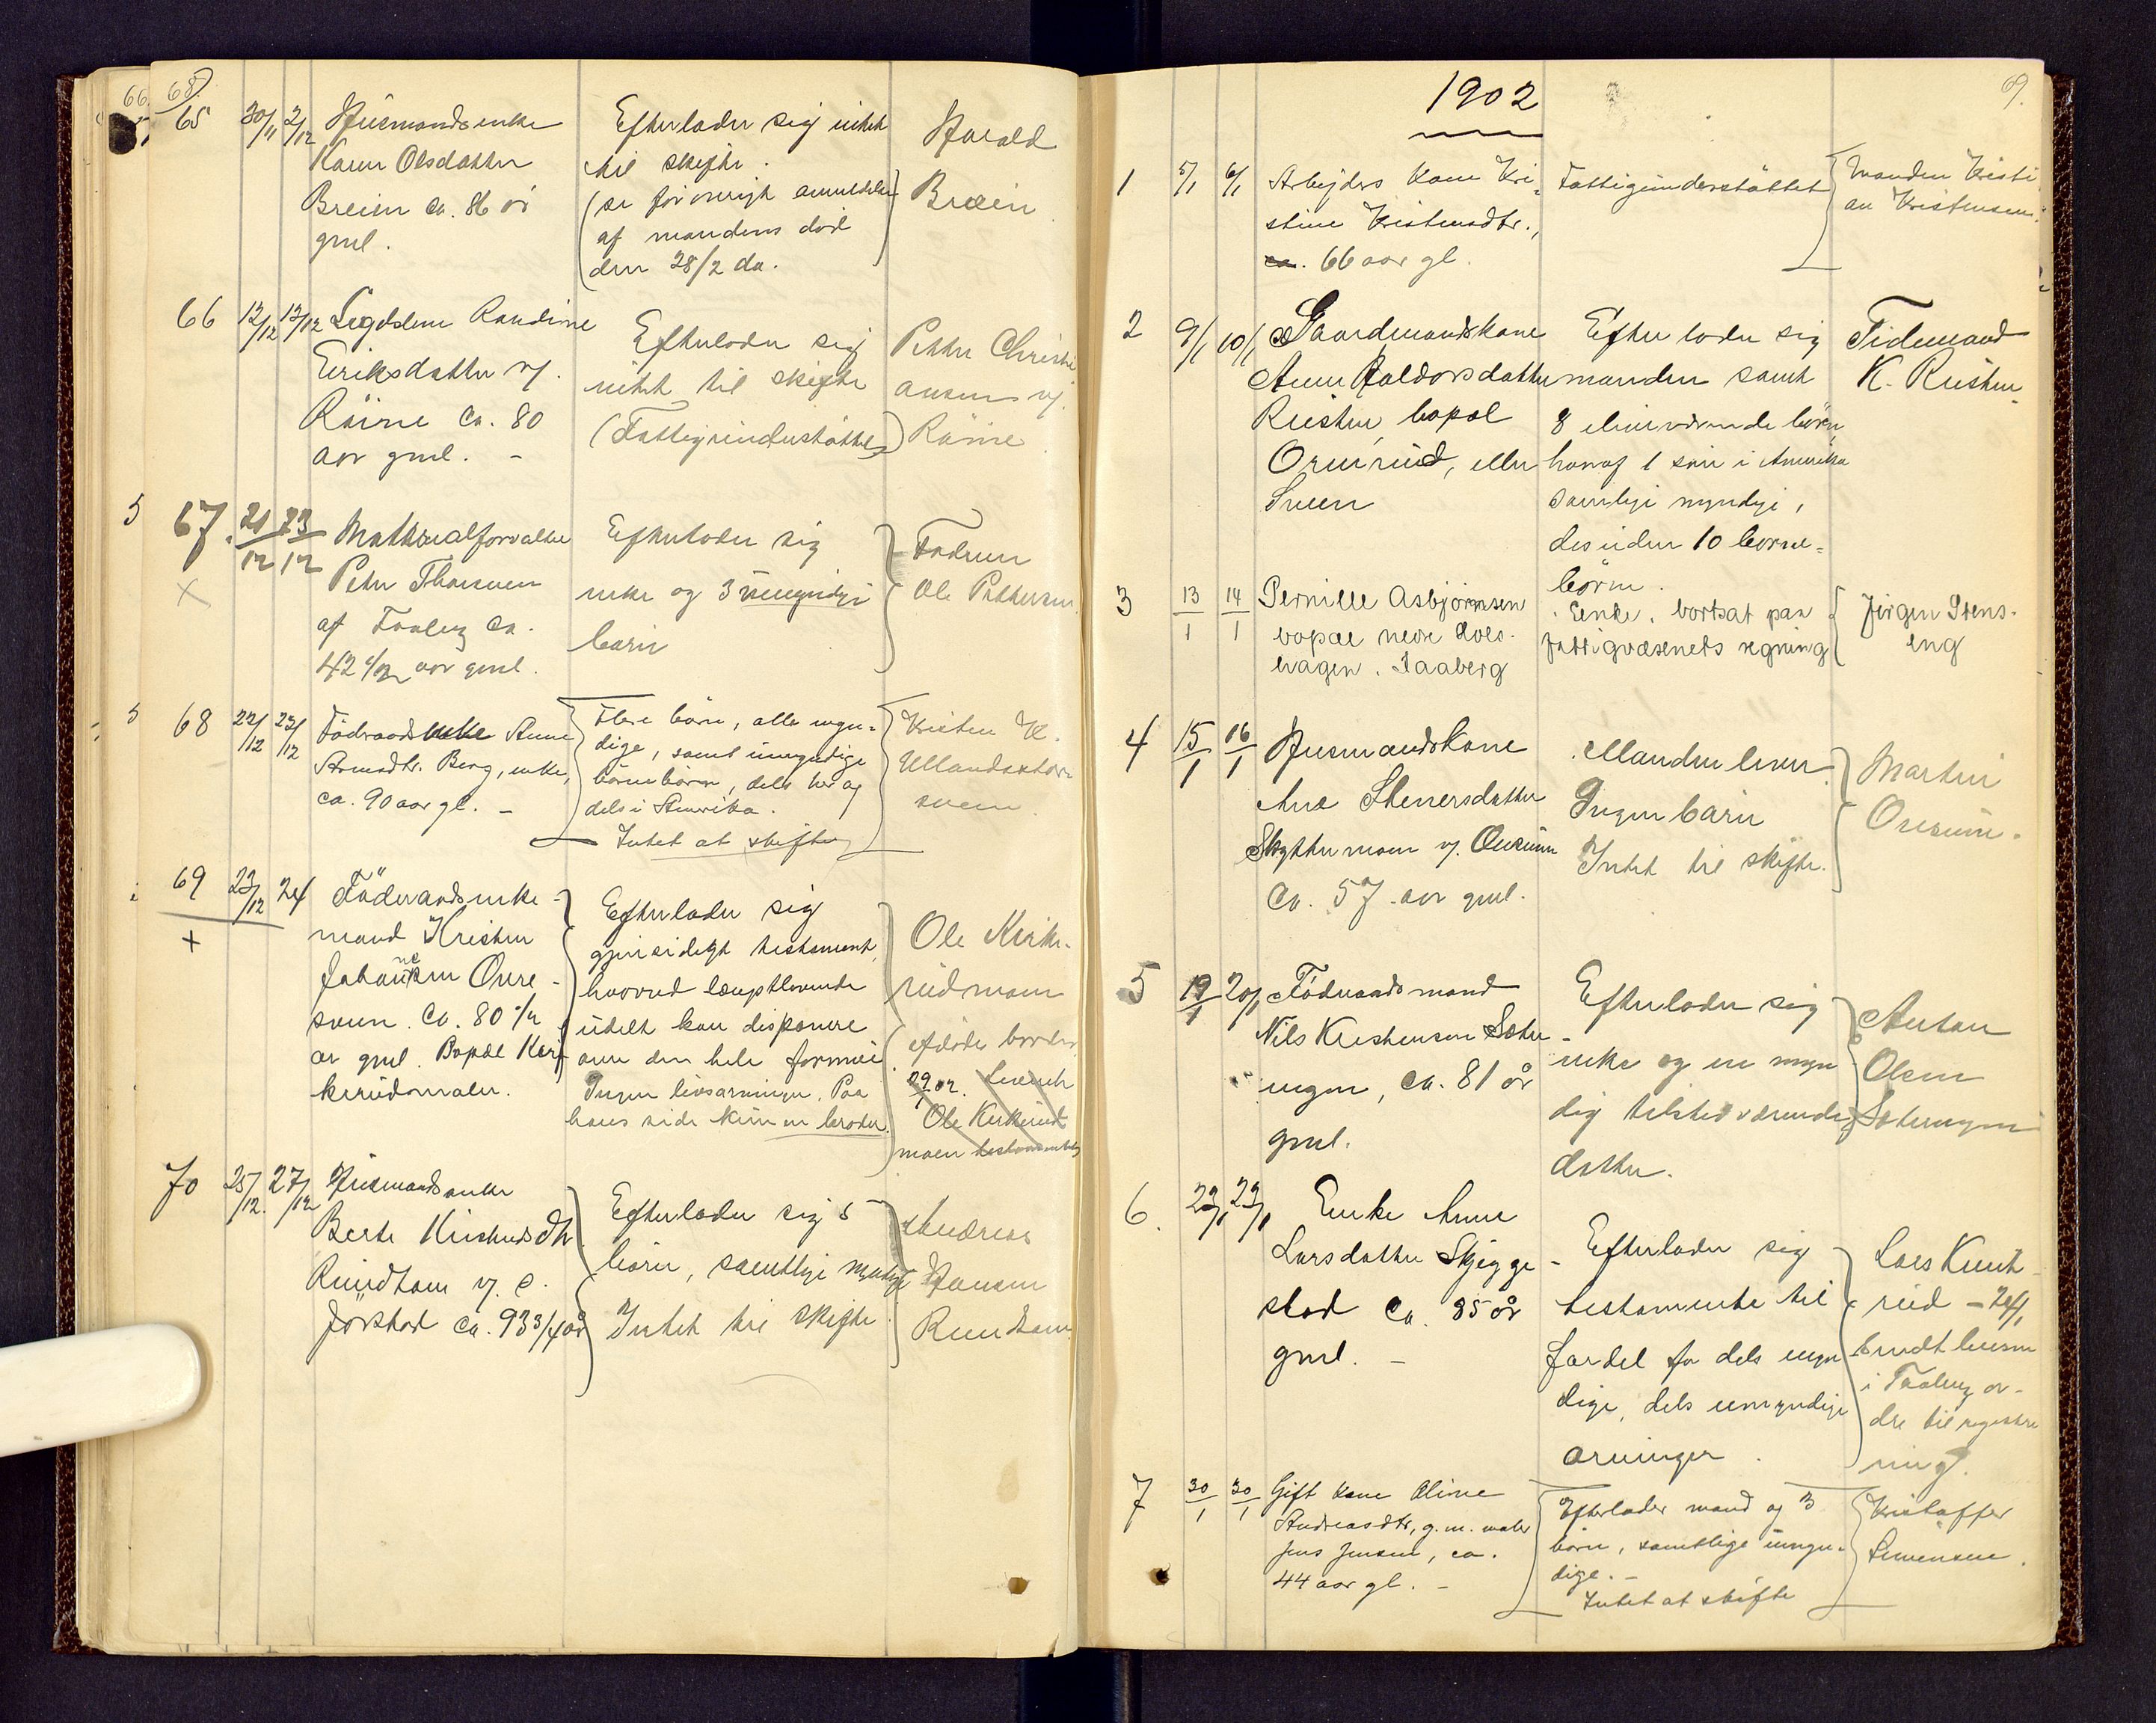 66. 68.
65 30/11 2/12 Husmandsenke
Karen Olsdatter
Breien ca. 86 år
gml.
Efterlader sig intet
til skifte.
(se forøvrigt anmeldelse
af mandens død
den 28/2 da.
Harald
Bræin
66 12/12 13/12 Lægdslem Randine
Eriksdatter v/.
Röine ca. 80
aar gml. -
Efterlader sig
intet til skifte
(Fattigunderstöttet)
Petter Christi
ansen v/.
Röine
5 67. 21/12 23/12 Materialforvalter
Peter Thoresen
af Faaberg ca.
42 1/2 aar gml.
Efterlader sig
enke og 3 umyndige
børn
Faderen
Ole Pettersen
5 68 22/12 23/12 Föderaadsenke Anne
Arnesdtr. Berg, enke,
ca. 90 aar gl. -
Flere börn, alle myn-
dige, samt umyndige
börnebörn, dels her og
dels i Amerika.
Intet at skifte
Kristen K.
Ullandsstor
sveen
69 23/12 24 Föderaadsenke-
mand Kristen
Johannesen Overe-
sveen. Ca. 80 1/2
år gml. Bopæl Kir-
kerudsmalen.
Efterlader sig
gjensidigt testament,
hvorved længstlevende
udelt kan disponere
over den hele formue
Ingen livsarvinger. Paa
hans side kun en broder.
Ole Kirke-
rudmoen
afdöde broder
Ole Kirkerud
moen testamentet
70 25/12. 27/12 Husmandsenke
Berte Kristensdtr
Rundhom v/. S.
Jörstad ca. 93 3/4 år
Efterlader sig 5
børn, samtlige myndige
Intet til skifte
Andreas
Hansen
Rundhom
1902
69.
1 5/1 6/1 Arbejders kone Kri-
stine Kristensdtr.,
ca. 66 aar gl.
Fattigunderstöttet
Manden Kristi
an Kristensen.
2 9/1 10/1 Gaardmandskone
Anne Haldorsdatter
Rusten, bopæl
Ormrud, eller
Sveen
Efterlader sig
manden samt
8 tilværende börn,
hvoraf 1 søn i Amerika
samtlige myndige,
desuden 10 børne-
börn.
Tidemand
K. Rusten.
3 13/1 14/1 Pernille Asbjörnsen
bopæl nedre
hagen. Faaberg
Enke. bortsat paa
fattigvæsenets regning
Jörgen Stens-
eng
4 15/1 16/1 Husmandskone
Ane Stenersdatter
Skyttermoen v/.
Ca. 57 aar gml.
Manden lever.
Ingen børn
Intet til skifte.
Martin
5 19/1 20/1 Föderaadsmand
Nils Kristensen Sæter-
engen, ca. 81 år
gml.
Efterlader sig
enke og en myn
dig tilstedeværende
datter.
Anton
Olsen
Sæterengen
6. 23/1 23/1 Enke Anne
Larsdatter Skjegge-
stad ca. 85 år
gml. -
Efterlader sig
testamente til
fordel for dels myn
dige, dels umyndige
arvinger.
Lars Knut-
rud - 24/1
sendt lensm
i Faaberg or-
dre til registre
ring.
7 30/1 30/1 Gift kone Oline
Andreasdtr, g. m. maler
Jens Jensen, ca.
44 aar gl. -
Efterlader mand og 3
börn, samtlige umyn-
dige. -
Intet at skifte
Kristoffer
Simensen.